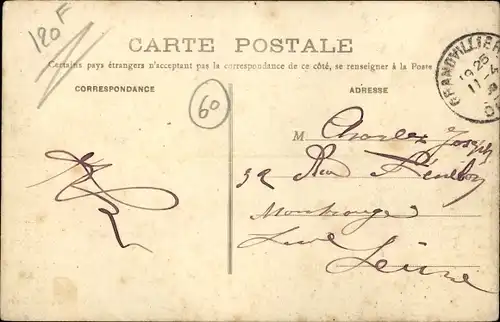 120F
CARTE POSTALE
Certains pays étrangers n'acceptant pas la correspondance de ce côté, se renseigner à la Poste
CORRESPONDANCE
ADRESSE
60
GRANDVILLIERS
M. Charles Joseph
32 Rue
Montrouge
Seine